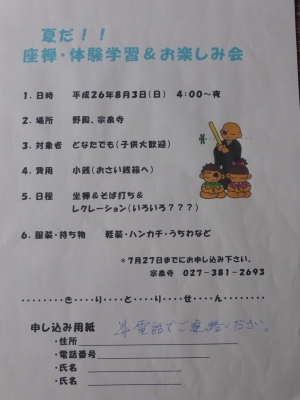 夏だ！！
座禅・体験学習＆お楽しみ会
1．日時　平成26年8月3日（日）　4：00～夜
2．場所　野殿、宗泉寺
3．対象者　どなたでも（子供大歓迎）
4．費用　小銭（おさい銭箱へ）
5．日程　坐禅＆そば打ち＆
レクレーション（いろいろ？？？）
6．服装・持ち物　軽装・ハンカチ・うちわなど
＊7月27日までにお申し込み下さい。
宗泉寺　027－381－2693
・・・・・・・・き・・り・・と・・り・・せ・・ん・・・・・・・・
申し込み用紙
電話でご連絡ください。
・住所
・電話番号
・氏名
・氏名